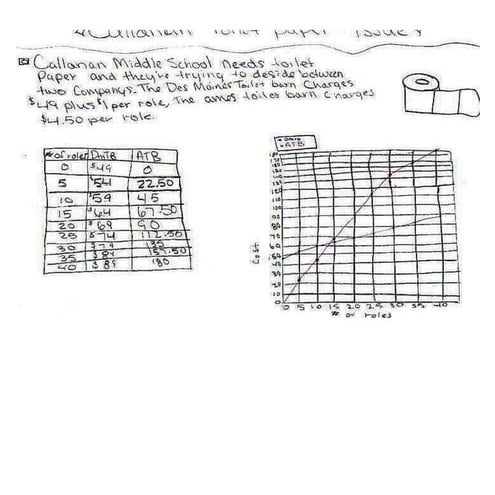 Callanan toilet paper issue
Callanan Middle School needs toilet
Paper and they're trying to deside between
two Companys. The Des Moines Toilet barn Charges
$49 plus $1 per role, The ames toilet barn Charges
$4.50 per role.
# of roles DMTB ATB
0 $49 0
5 $54 22.50
10 $59 45
15 $64 67.50
20 $69 90
25 $74 112.50
30 $79 135
35 $84 157.50
40 $89 180
ATB
Cost
90
80
70
60
50
40
30
20
10
0 5 10 15 20 25 30 35 40
# of roles